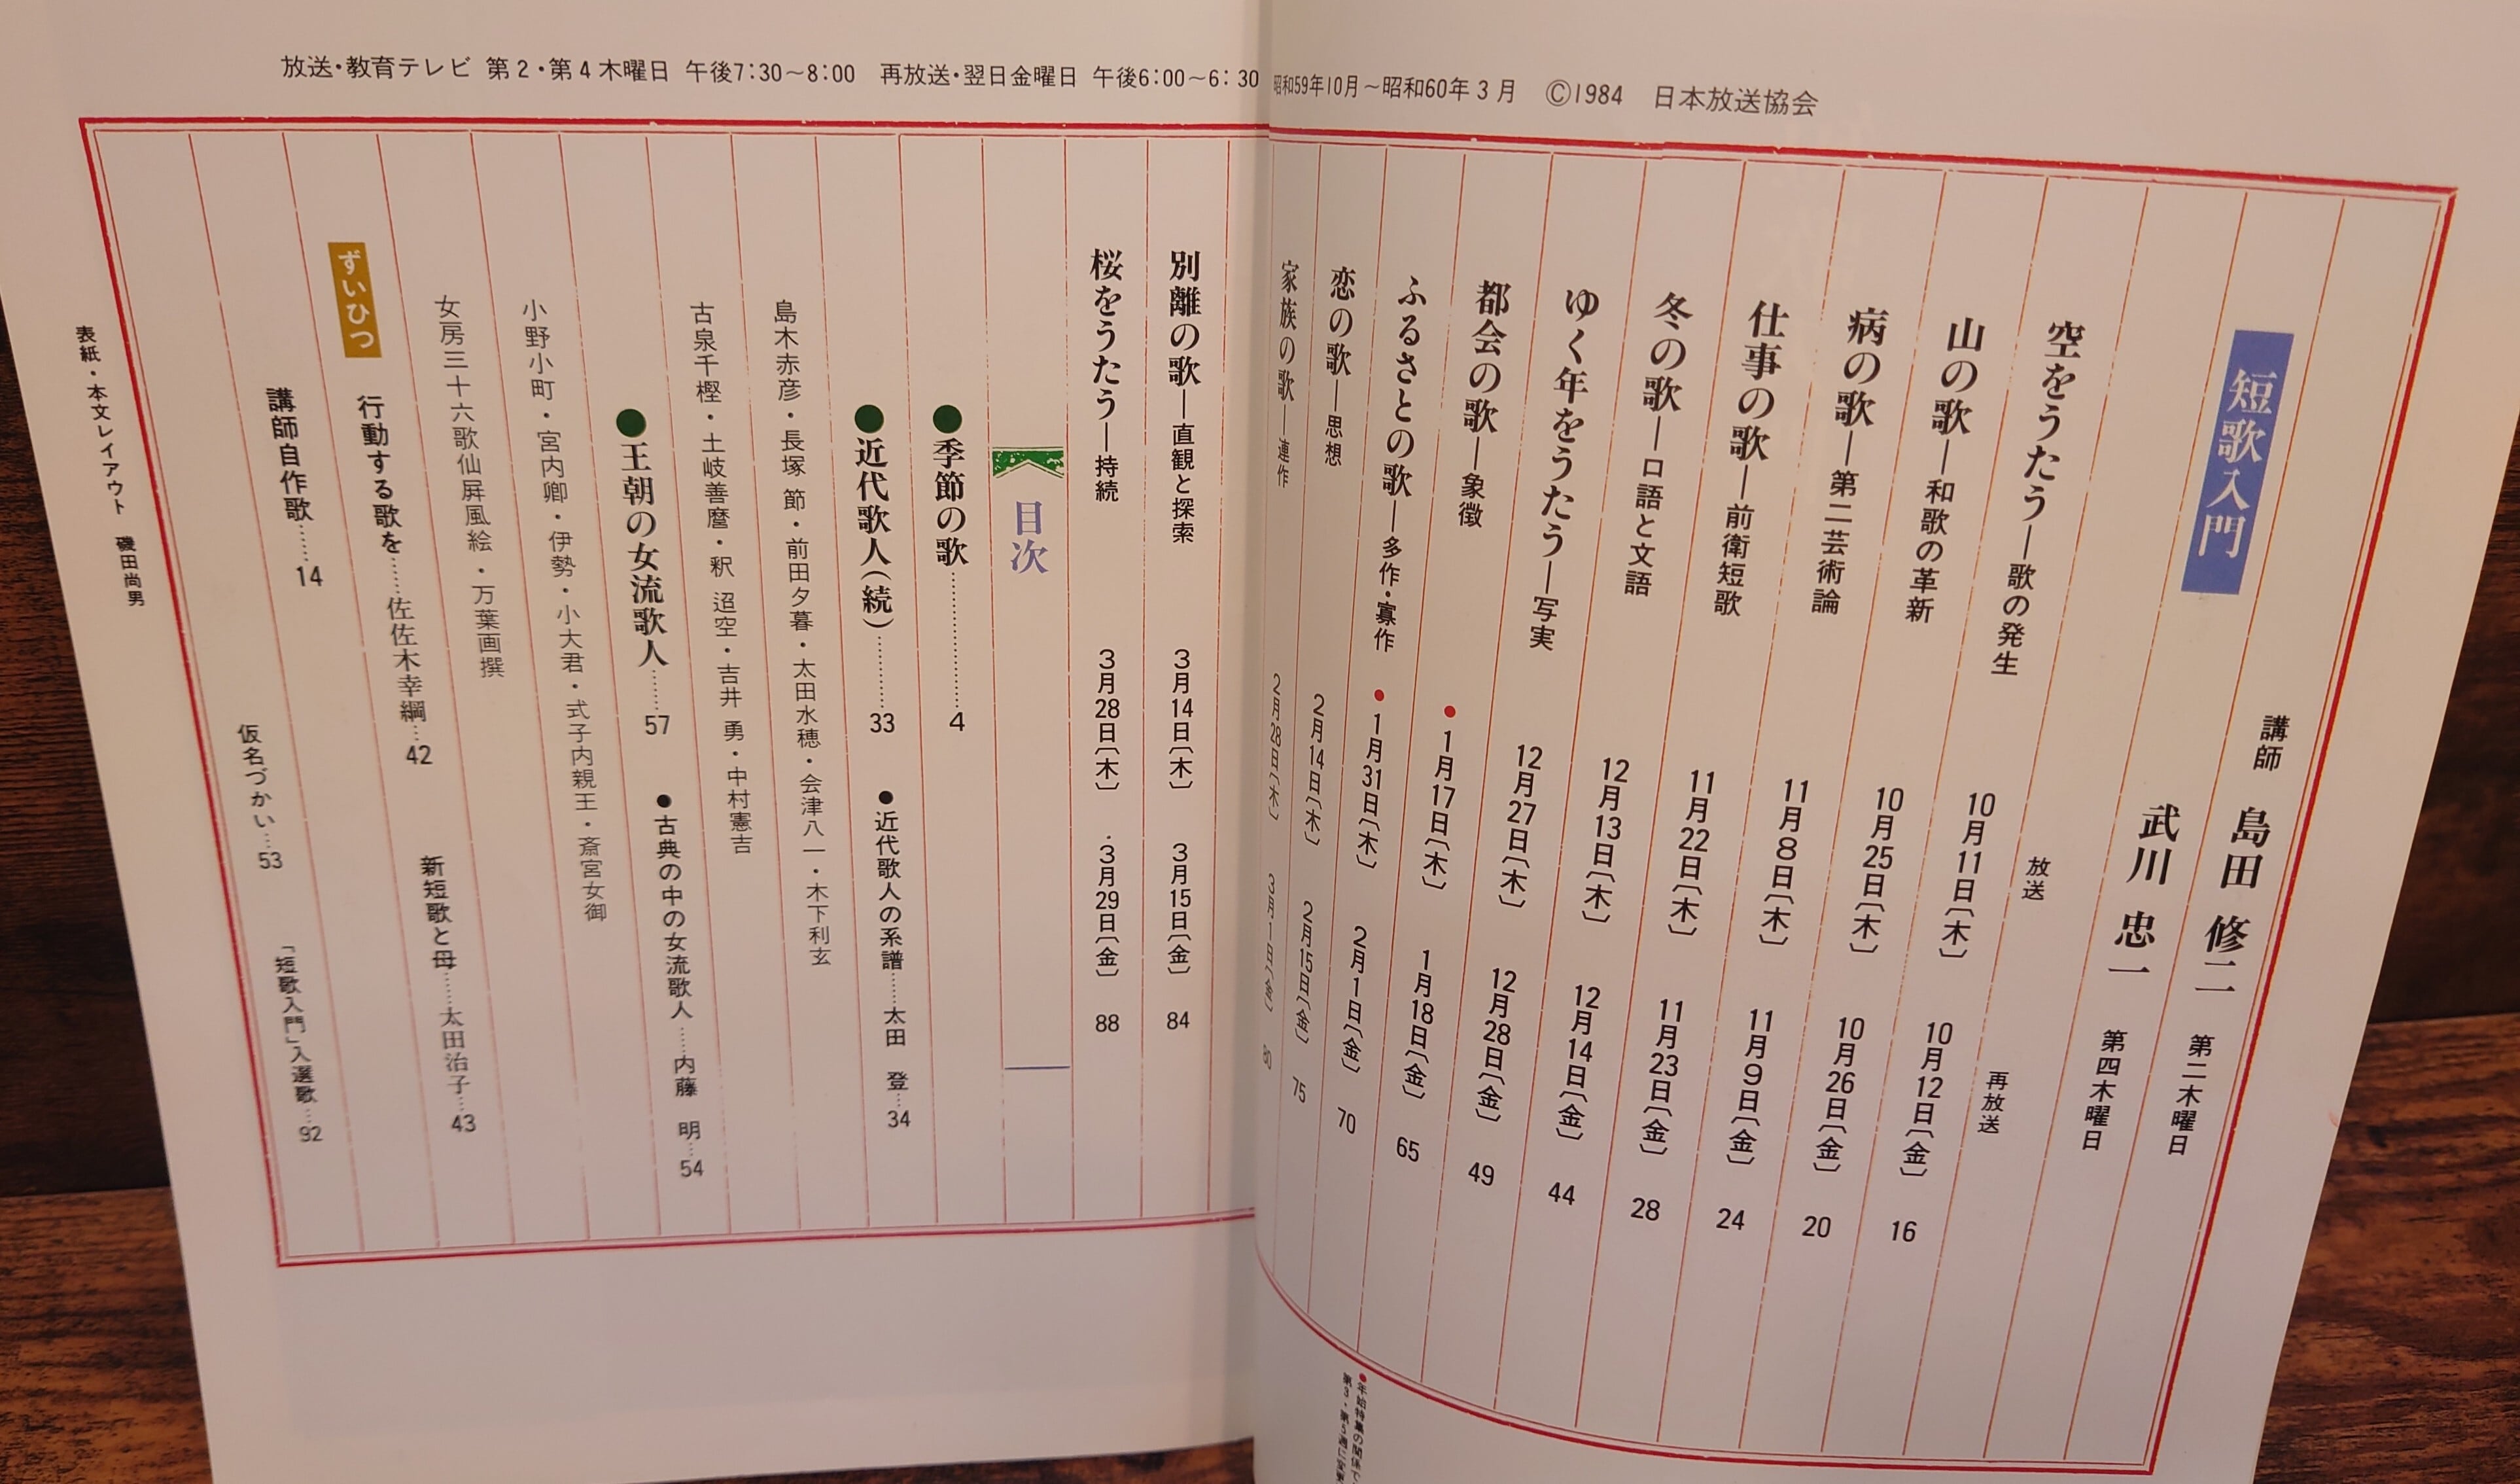 放送・教育テレビ 第2・第4木曜日 午後7:30～8:00 再放送・翌日金曜日 午後6:00～6:30
昭和59年10月～昭和60年3月 ©1984 日本放送協会
短歌入門
講師 島田 修二 第二木曜日
武川 忠一 第四木曜日
放送 再放送
空をうたう―歌の発生 10月11日〔木〕 10月12日〔金〕 16
山の歌―和歌の革新 10月25日〔木〕 10月26日〔金〕 20
病の歌―第二芸術論 11月8日〔木〕 11月9日〔金〕 24
仕事の歌―前衛短歌 11月22日〔木〕 11月23日〔金〕 28
冬の歌―口語と文語 12月13日〔木〕 12月14日〔金〕 44
ゆく年をうたう―写実 12月27日〔木〕 12月28日〔金〕 49
都会の歌―象徴 ●1月17日〔木〕 1月18日〔金〕 65
ふるさとの歌―多作・寡作 ●1月31日〔木〕 2月1日〔金〕 70
恋の歌―思想 2月14日〔木〕 2月15日〔金〕 75
家族の歌―連作 2月28日〔木〕 3月1日〔金〕 80
別離の歌―直観と探索 3月14日〔木〕 3月15日〔金〕 84
桜をうたう―持続 3月28日〔木〕 3月29日〔金〕 88
目次
●季節の歌………4
●近代歌人(続)………33 ●近代歌人の系譜……太田 登…34
島木赤彦・長塚 節・前田夕暮・太田水穂・会津八一・木下利玄
古泉千樫・土岐善麿・釈 迢空・吉井 勇・中村憲吉
●王朝の女流歌人……57 ●古典の中の女流歌人……内藤 明…54
小野小町・宮内卿・伊勢・小大君・式子内親王・斎宮女御
女房三十六歌仙屛風絵・万葉画撰
ずいひつ 行動する歌を……佐佐木幸綱…42 新短歌と母……太田治子…43
講師自作歌……14 仮名づかい…53 「短歌入門」入選歌…92
表紙・本文レイアウト 磯田尚男
●年始特集の関係で
第3・第5週に変更